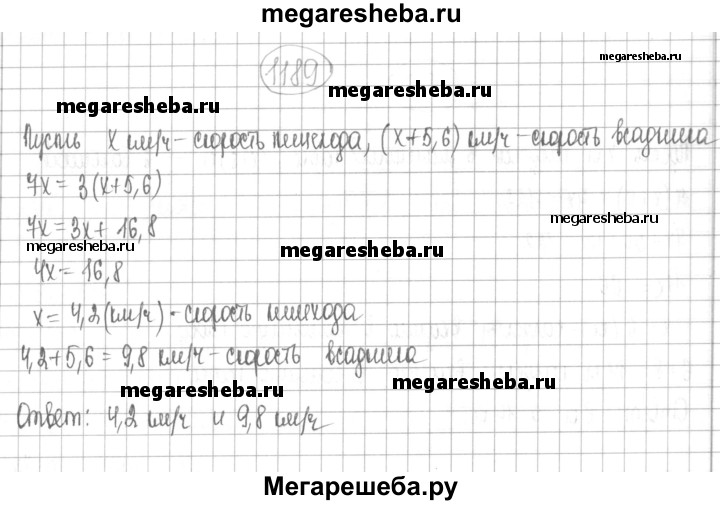 megaresheba.ru
1189
megaresheba.ru
megaresheba.ru
megaresheba.ru
Пусть х км/ч - скорость пешехода, (х+5,6) км/ч - скорость всадника
7х = 3(х+5,6)
7х = 3х + 16,8
megaresheba.ru
megaresheba.ru
megaresheba.ru
4х = 16,8
х = 4,2 (км/ч) - скорость пешехода
4,2+5,6 = 9,8 км/ч - скорость всадника
megaresheba.ru
megaresheba.ru
Ответ: 4,2 км/ч и 9,8 км/ч
Мегарешеба.ру